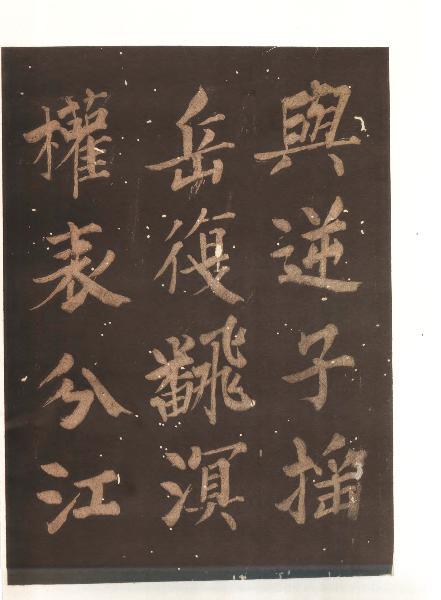 與逆子搖
岳復飜溟
權表分江